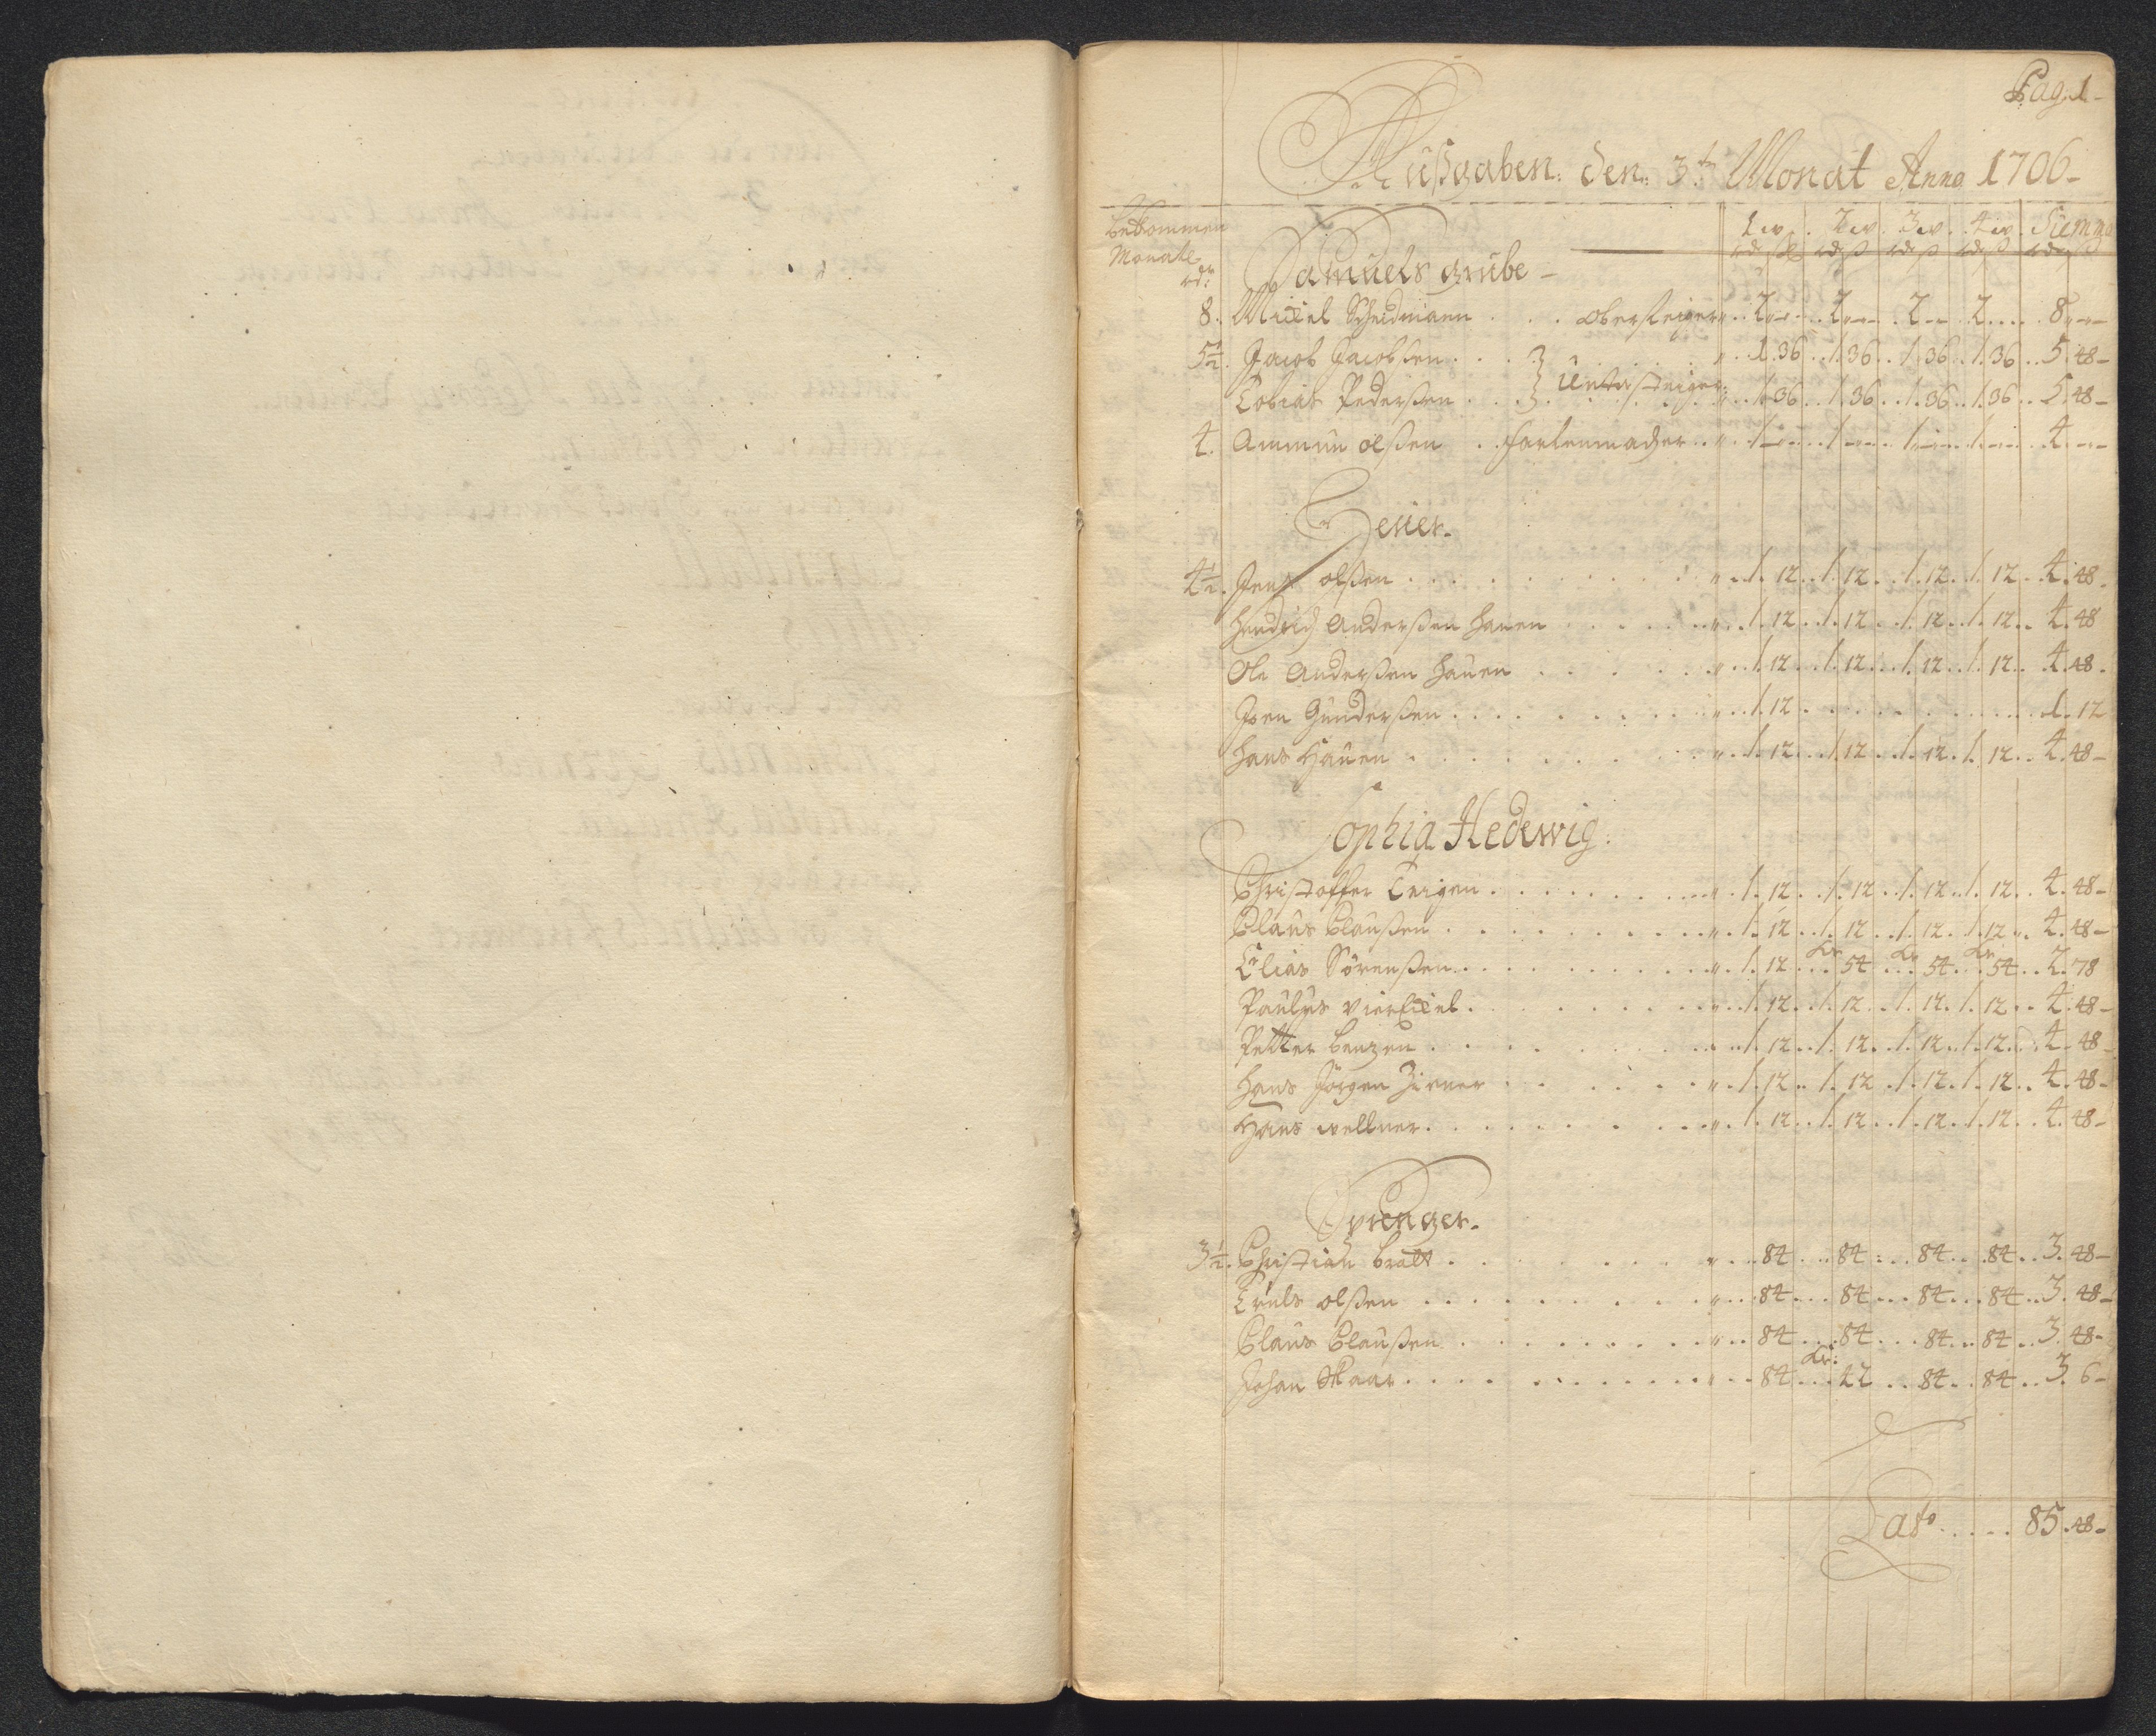 Pag. 1
Außgaben. den. 3t. Monat Anno 1706
bekommen
Monatl.
rdr
1 w. 2 w. 3 w. 4 w. Summa
rd ß rd ß rd ß rd ß rd ß
Samuels grube
8. Michel Schidmann . . . obersteiger . . 2 . . 2 . . 2 . . 2 . . . 8
5½. Jacob Jacobsen . . . 1. 36 . . 1. 36 . . 1. 36 . . 1. 36 . . 5. 48
Untersteiger
Tobias Pedersen . . . 1. 36 . . 1. 36 . . 1. 36 . . 1. 36 . . 5. 48
4. Ammun olßen . . . . 1 . . 1 . . 1 . . 1 . . 4
4½. Jens olßen . . . 1. 12 . . 1. 12 . . 1. 12 . . 1. 12 . . 4. 48
Hendrich Anderßen Hauen . . . 1. 12 . . 1. 12 . . 1. 12 . . 1. 12 . . 4. 48
Ole Anderßen Hauen . . . 1. 12 . . 1. 12 . . 1. 12 . . 1. 12 . . 4. 48
Joen Gunderßen . . . 1. 12 . . . 1. 12
Hans Hauen . . . 1. 12 . . 1. 12 . . 1. 12 . . 1. 12 . . 4. 48
Sophia Hedewig.
Christoffer . . . 1. 12 . . 1. 12 . . 1. 12 . . 1. 12 . . 4. 48
Claus Claußen . . . 1. 12 . . 1. 12 . . 1. 12 . . 1. 12 . . 4. 48
Elias Sörenßen . . . 1. 12 . . Kr 54 . . Kr 54 . . Kr 54 . . 2. 78
Paulus . . . 1. 12 . . 1. 12 . . 1. 12 . . 1. 12 . . 4. 48
Petter . . . 1. 12 . . 1. 12 . . 1. 12 . . 1. 12 . . 4. 48
Hans Jörgen . . . 1. 12 . . 1. 12 . . 1. 12 . . 1. 12 . . 4. 48
Hans wellner . . . 1. 12 . . 1. 12 . . 1. 12 . . 1. 12 . . 4. 48
Sprenger.
3½. Christian bratt . . . 84 . . 84 . . 84 . . 84 . . 3. 48
Truls olßen . . . 84 . . 84 . . 84 . . 84 . . 3. 48
Claus Claußen . . . 84 . . 84 . . 84 . . 84 . . 3. 48
Johan Skaar . . . 84 . . Kr: 42 . . 84 . . 84 . . 3. 6
Lats . . . . 85. 48